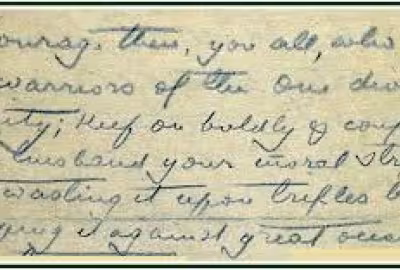 ourage then, you all, who
warriors of the One div
ity; Keep on boldly &
husband your moral str
wasting it upon trifles b
ying it against great ones